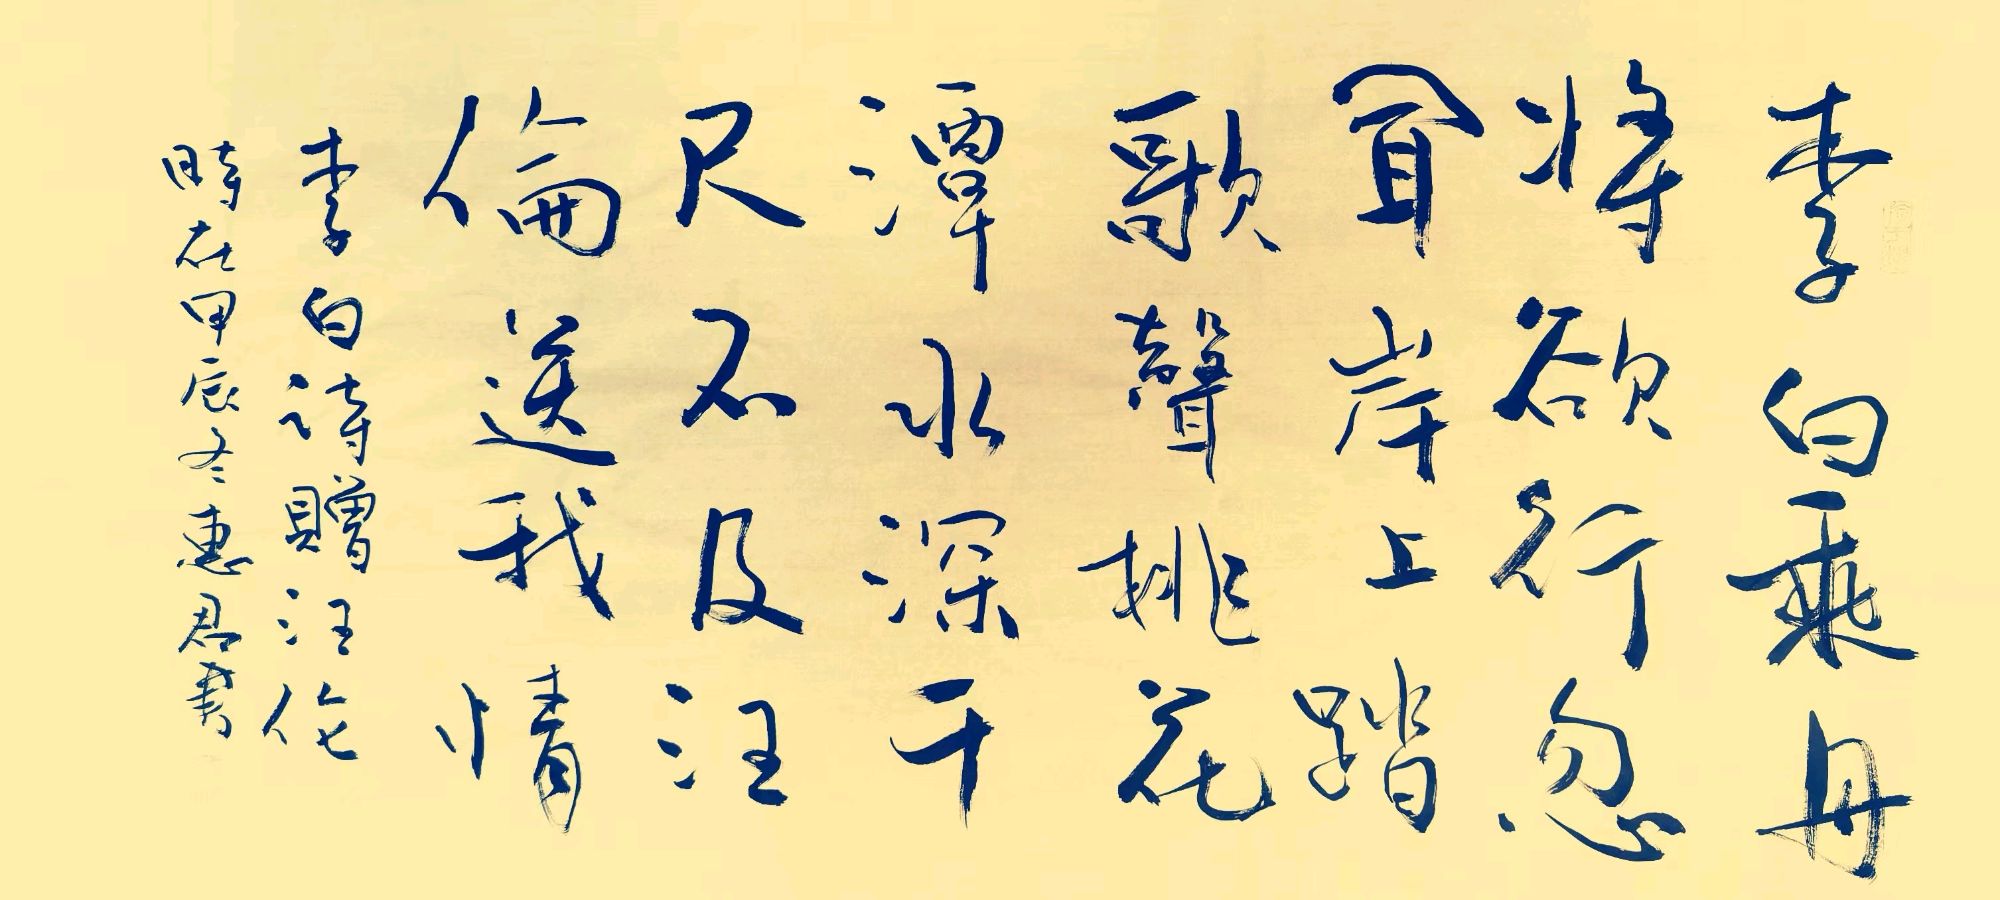 李白乘舟
將欲行忽
聞岸上踏
歌聲桃花
潭水深千
尺不及汪
倫送我情
李白詩贈汪伦
時在甲辰冬惠君書